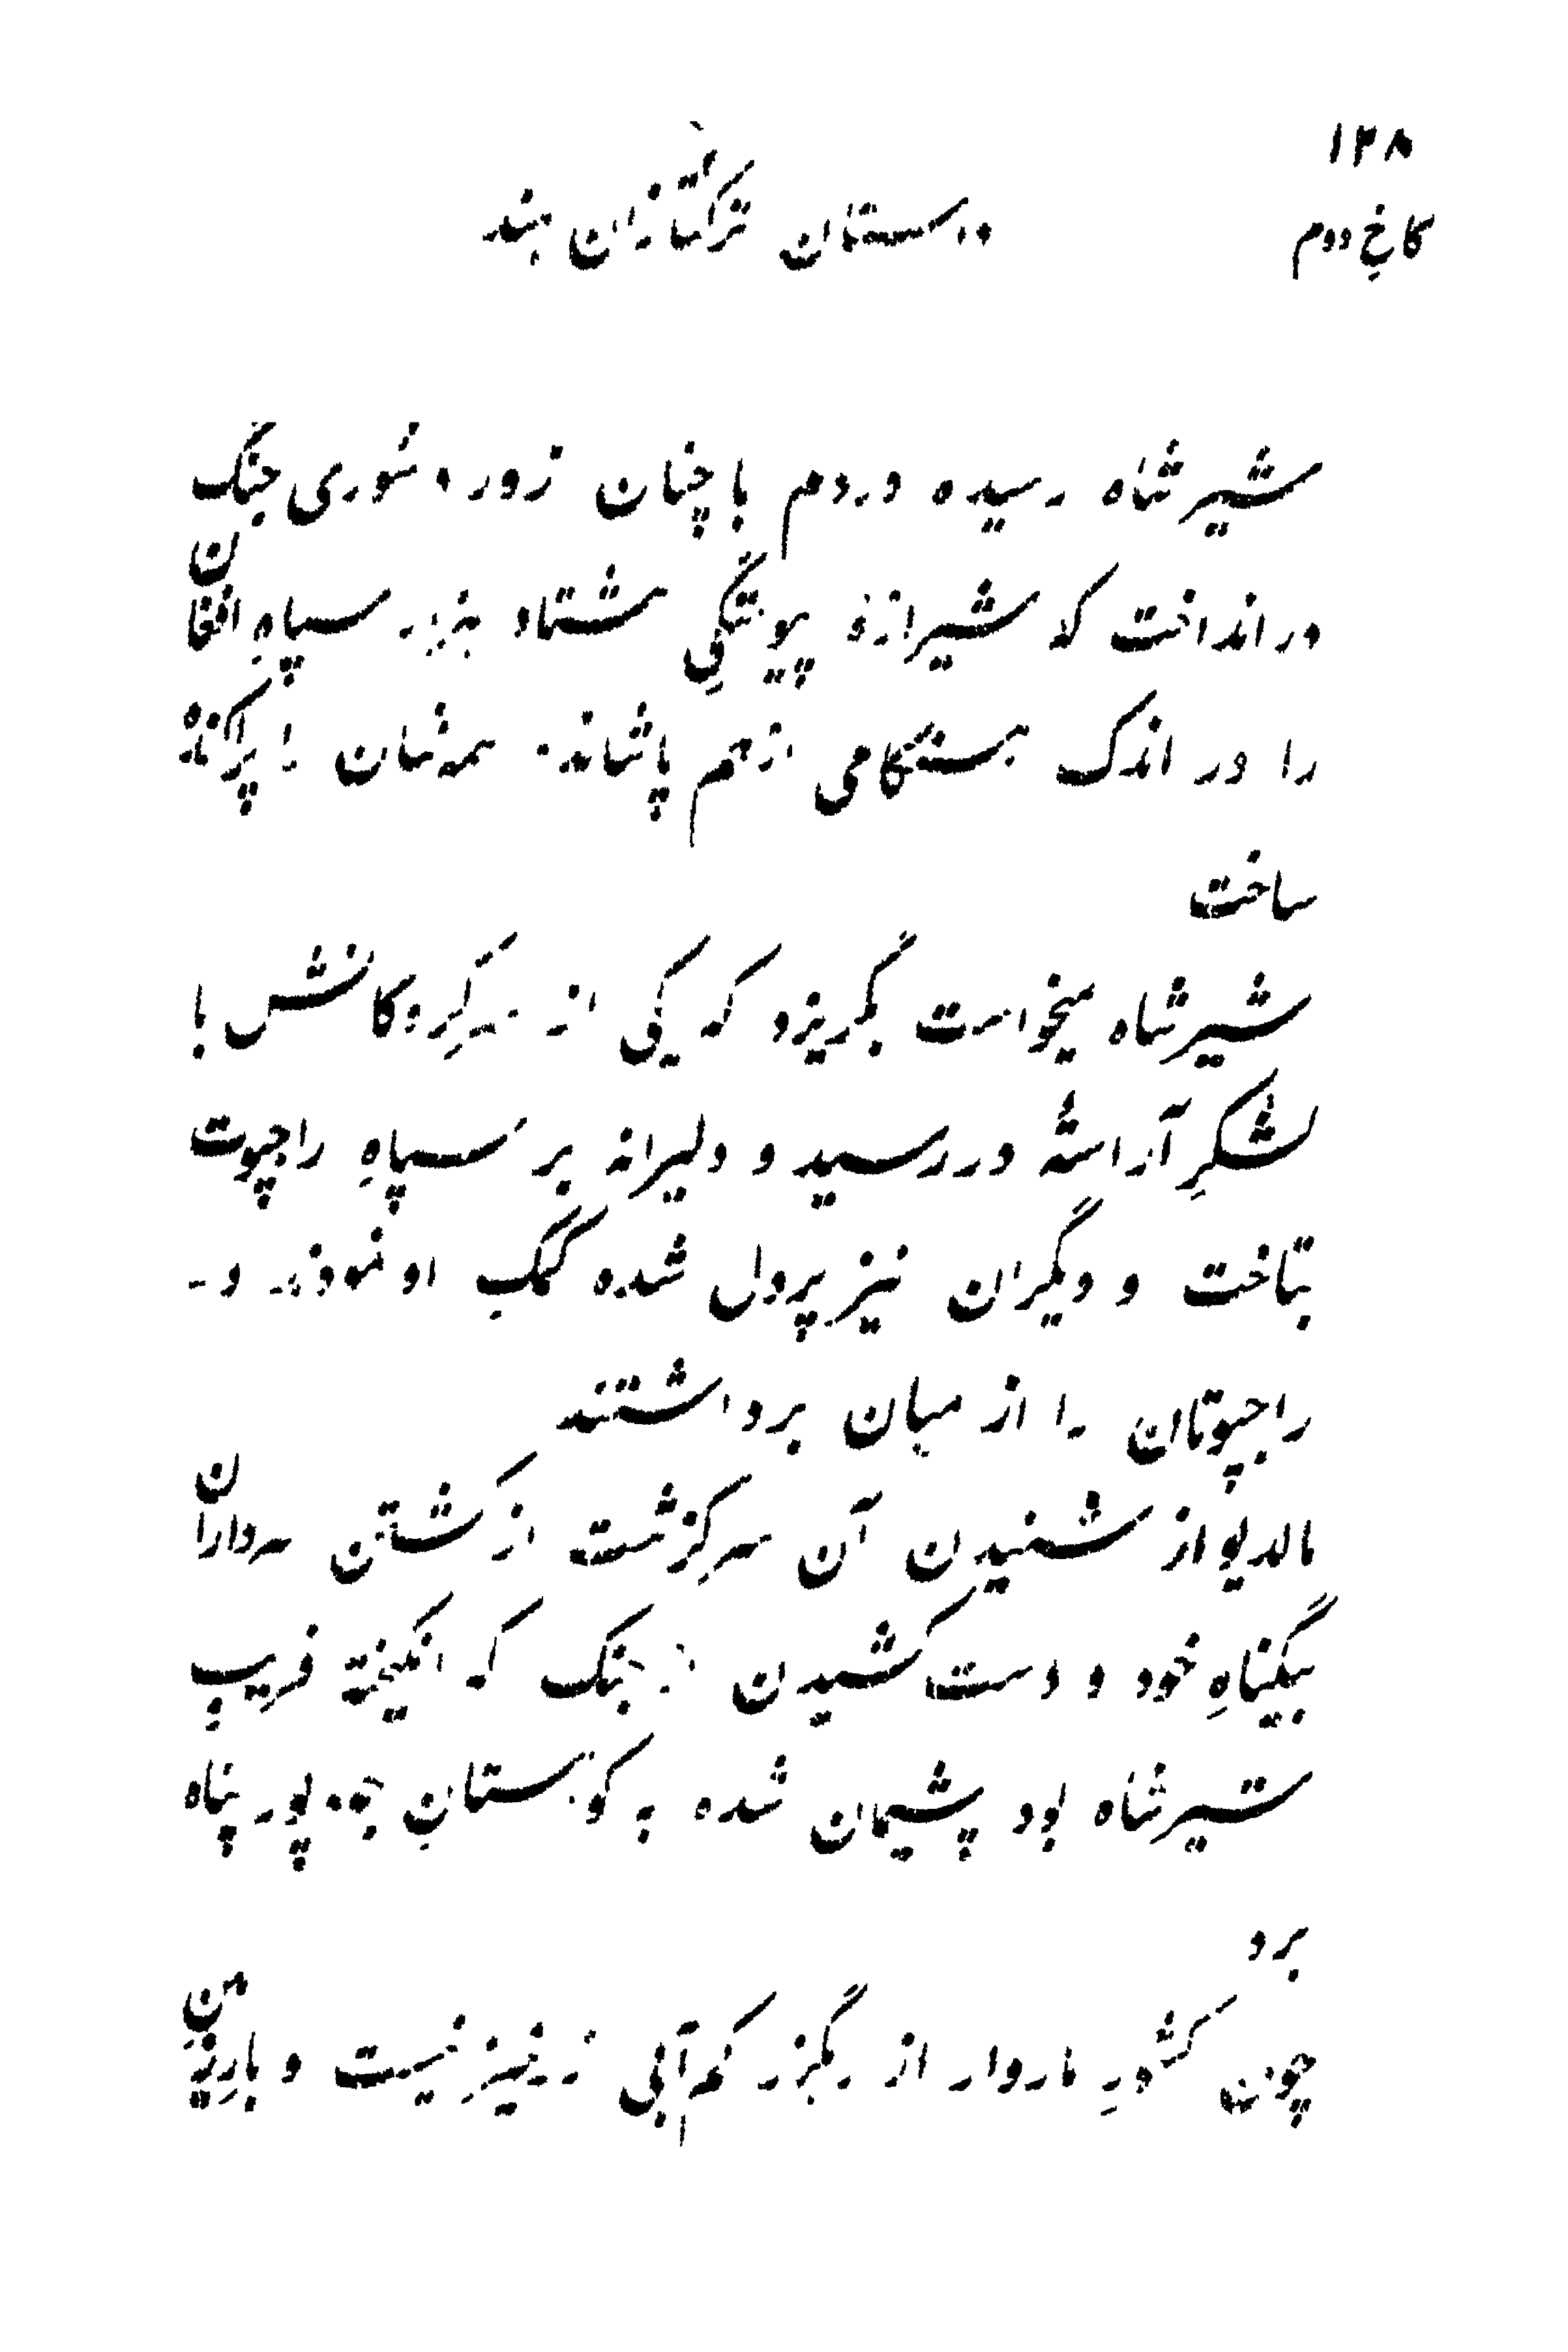 ۱۳۸
کاخِ دوم
داستان ترکتازان هند
شیر شاه رسیده دردم با چنان زور و شوری جنگ
در انداخت که شیرازهٔ پیوستگیِ هشتاد هزار سپاهِ افغان
را در اندک هنگامی از هم پاشاند و همه شان را پراکنده
ساخت
شیر شاه میخواست بگریزد که یکی از سرکردگانش با
لشکرِ آراستهٔ در رسید و دلیرانه بر سپاهِ راجپوت
بتاخت و دیگران نیز پردل شده کمک او نمودند و -
راجپوتان را از میان برداشتند
مالدیو از شنیدن آن سرگزشت از کشتن سرداران
بیگناهِ خود و دست کشیدن از جنگ که انگیخته فریبِ
شیر شاه بود پشیمان شده به کوهستانِ جودپور پناه
برد
چون کشورِ ماروار از رهگزر کم آبی زرخیز نیست و بارِ زمینِ